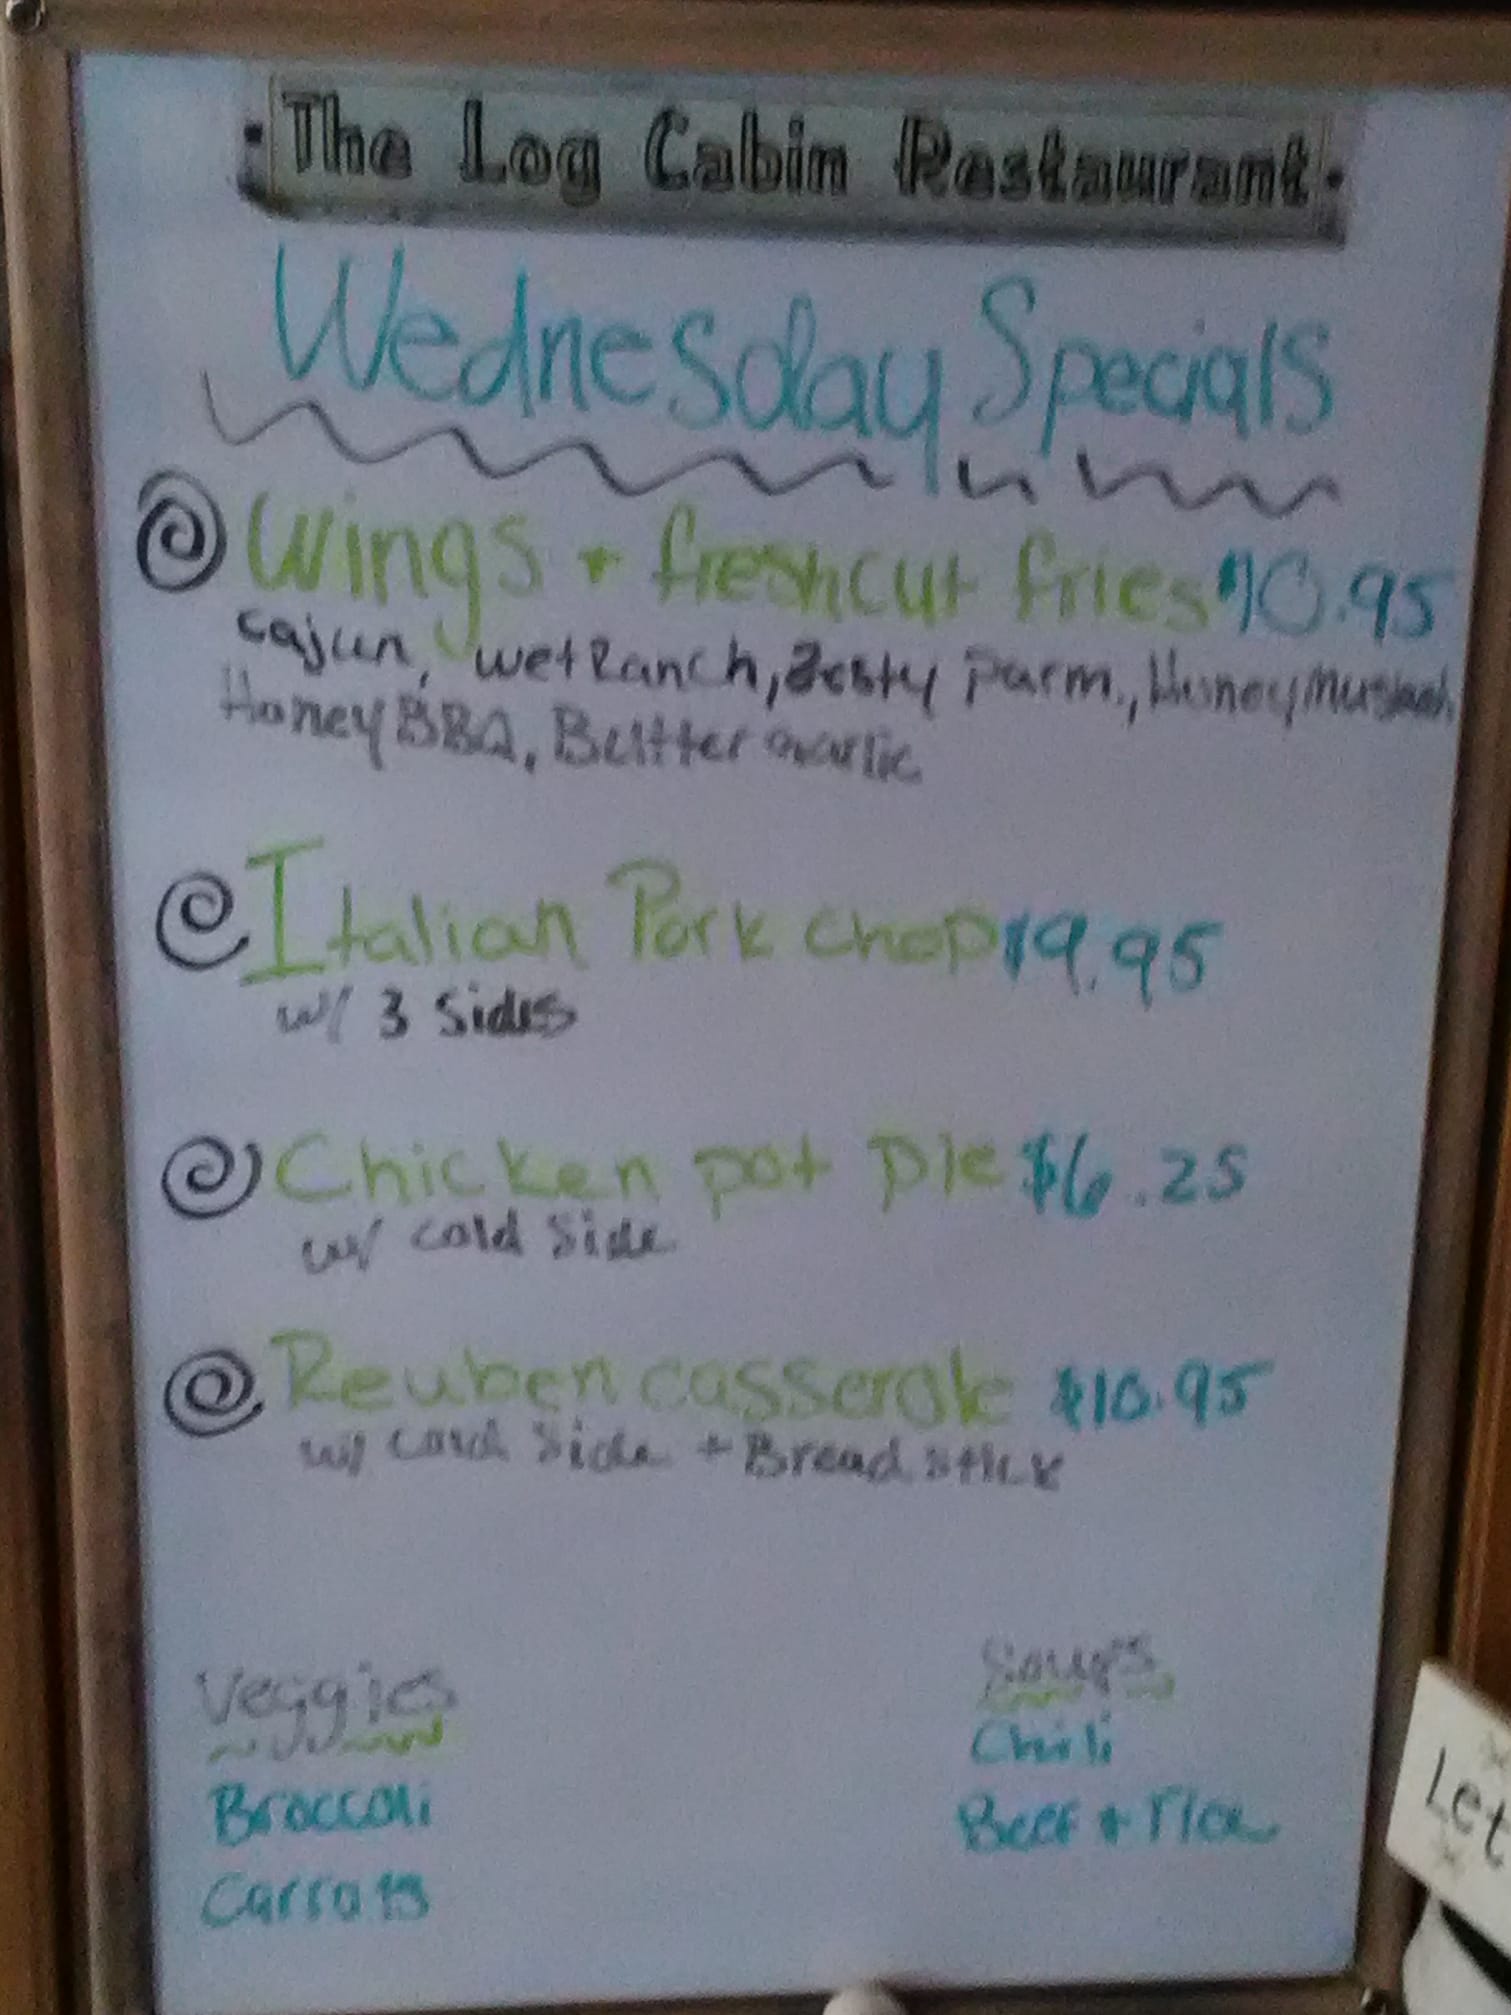 The Log Cabin Restaurant
Wednesday Specials
Wings + freshcut fries $10.95
cajun, wet Ranch, Zesty Parm, Honey Mustard,
Honey BBQ, Butter Garlic
Italian Pork Chop $9.95
w/ 3 sides
Chicken pot pie $6.25
w/ cold side
Reuben casserole $10.95
w/ cold side + Bread stick
Veggies
Broccoli
Carrots
Soups
Chili
Beef + Rice
Let